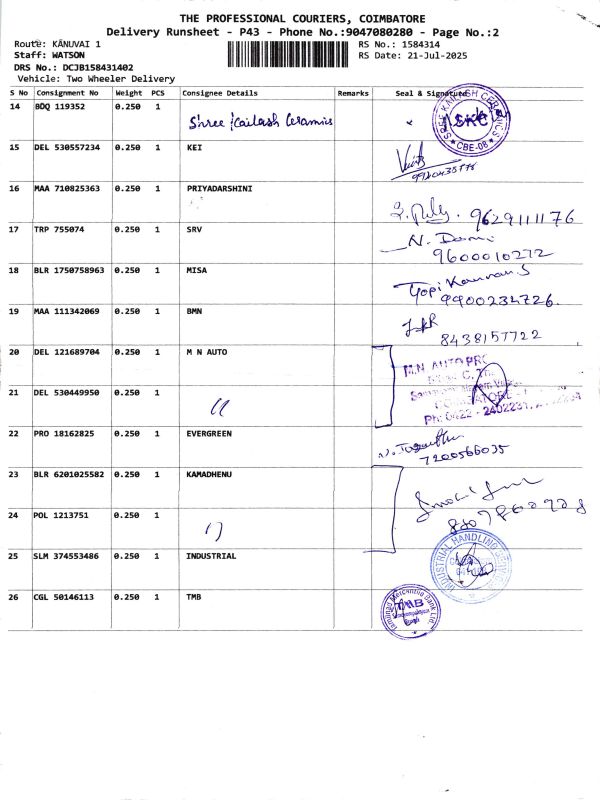 THE PROFESSIONAL COURIERS, COIMBATORE
Delivery Runsheet - P43 - Phone No.:9047080280 - Page No.:2
Route: KANUVAI 1
RS No.: 1584314
Staff: WATSON
RS Date: 21-Jul-2025
DRS No.: DCJB158431402
Vehicle: Two Wheeler Delivery
S No Consignment No Weight PCS Consignee Details Remarks Seal & Signature
14 BDQ 119352 0.250 1 Shree Kailash Ceramics
SHREE KAILASH CERAMICS
SKC
CBE-08
15 DEL 530557234 0.250 1 KEI
16 MAA 710825363 0.250 1 PRIYADARSHINI
9629111176
17 TRP 755074 0.250 1 SRV
9600010272
18 BLR 1750758963 0.250 1 MISA
9900234726
19 MAA 111342069 0.250 1 BMN
8438157722
20 DEL 121689704 0.250 1 M N AUTO
M.N. AUTO PRO
21 DEL 530449950 0.250 1 "
Ph: 0422 - 2402231
22 PRO 18162825 0.250 1 EVERGREEN
7200566035
23 BLR 6201025582 0.250 1 KAMADHENU
24 POL 1213751 0.250 1 "
25 SLM 374553486 0.250 1 INDUSTRIAL
INDUSTRIAL HANDLING
26 CGL 50146113 0.250 1 TMB
Tamilnad Mercantile Bank Ltd.
TMB